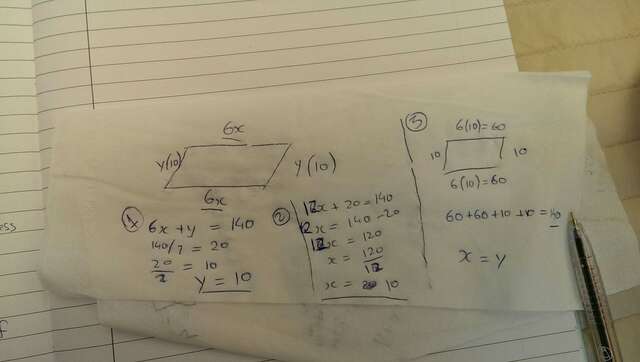 ess
6x
y(10)
y(10)
6x
1
6x + y = 140
140/7 = 20
20/2 = 10
y = 10
2
12x + 20 = 140
12x = 140 - 20
12x = 120
x = 120/12
x = 10
3
6(10) = 60
10
10
6(10) = 60
60 + 60 + 10 + 10 = 140
x = y
f